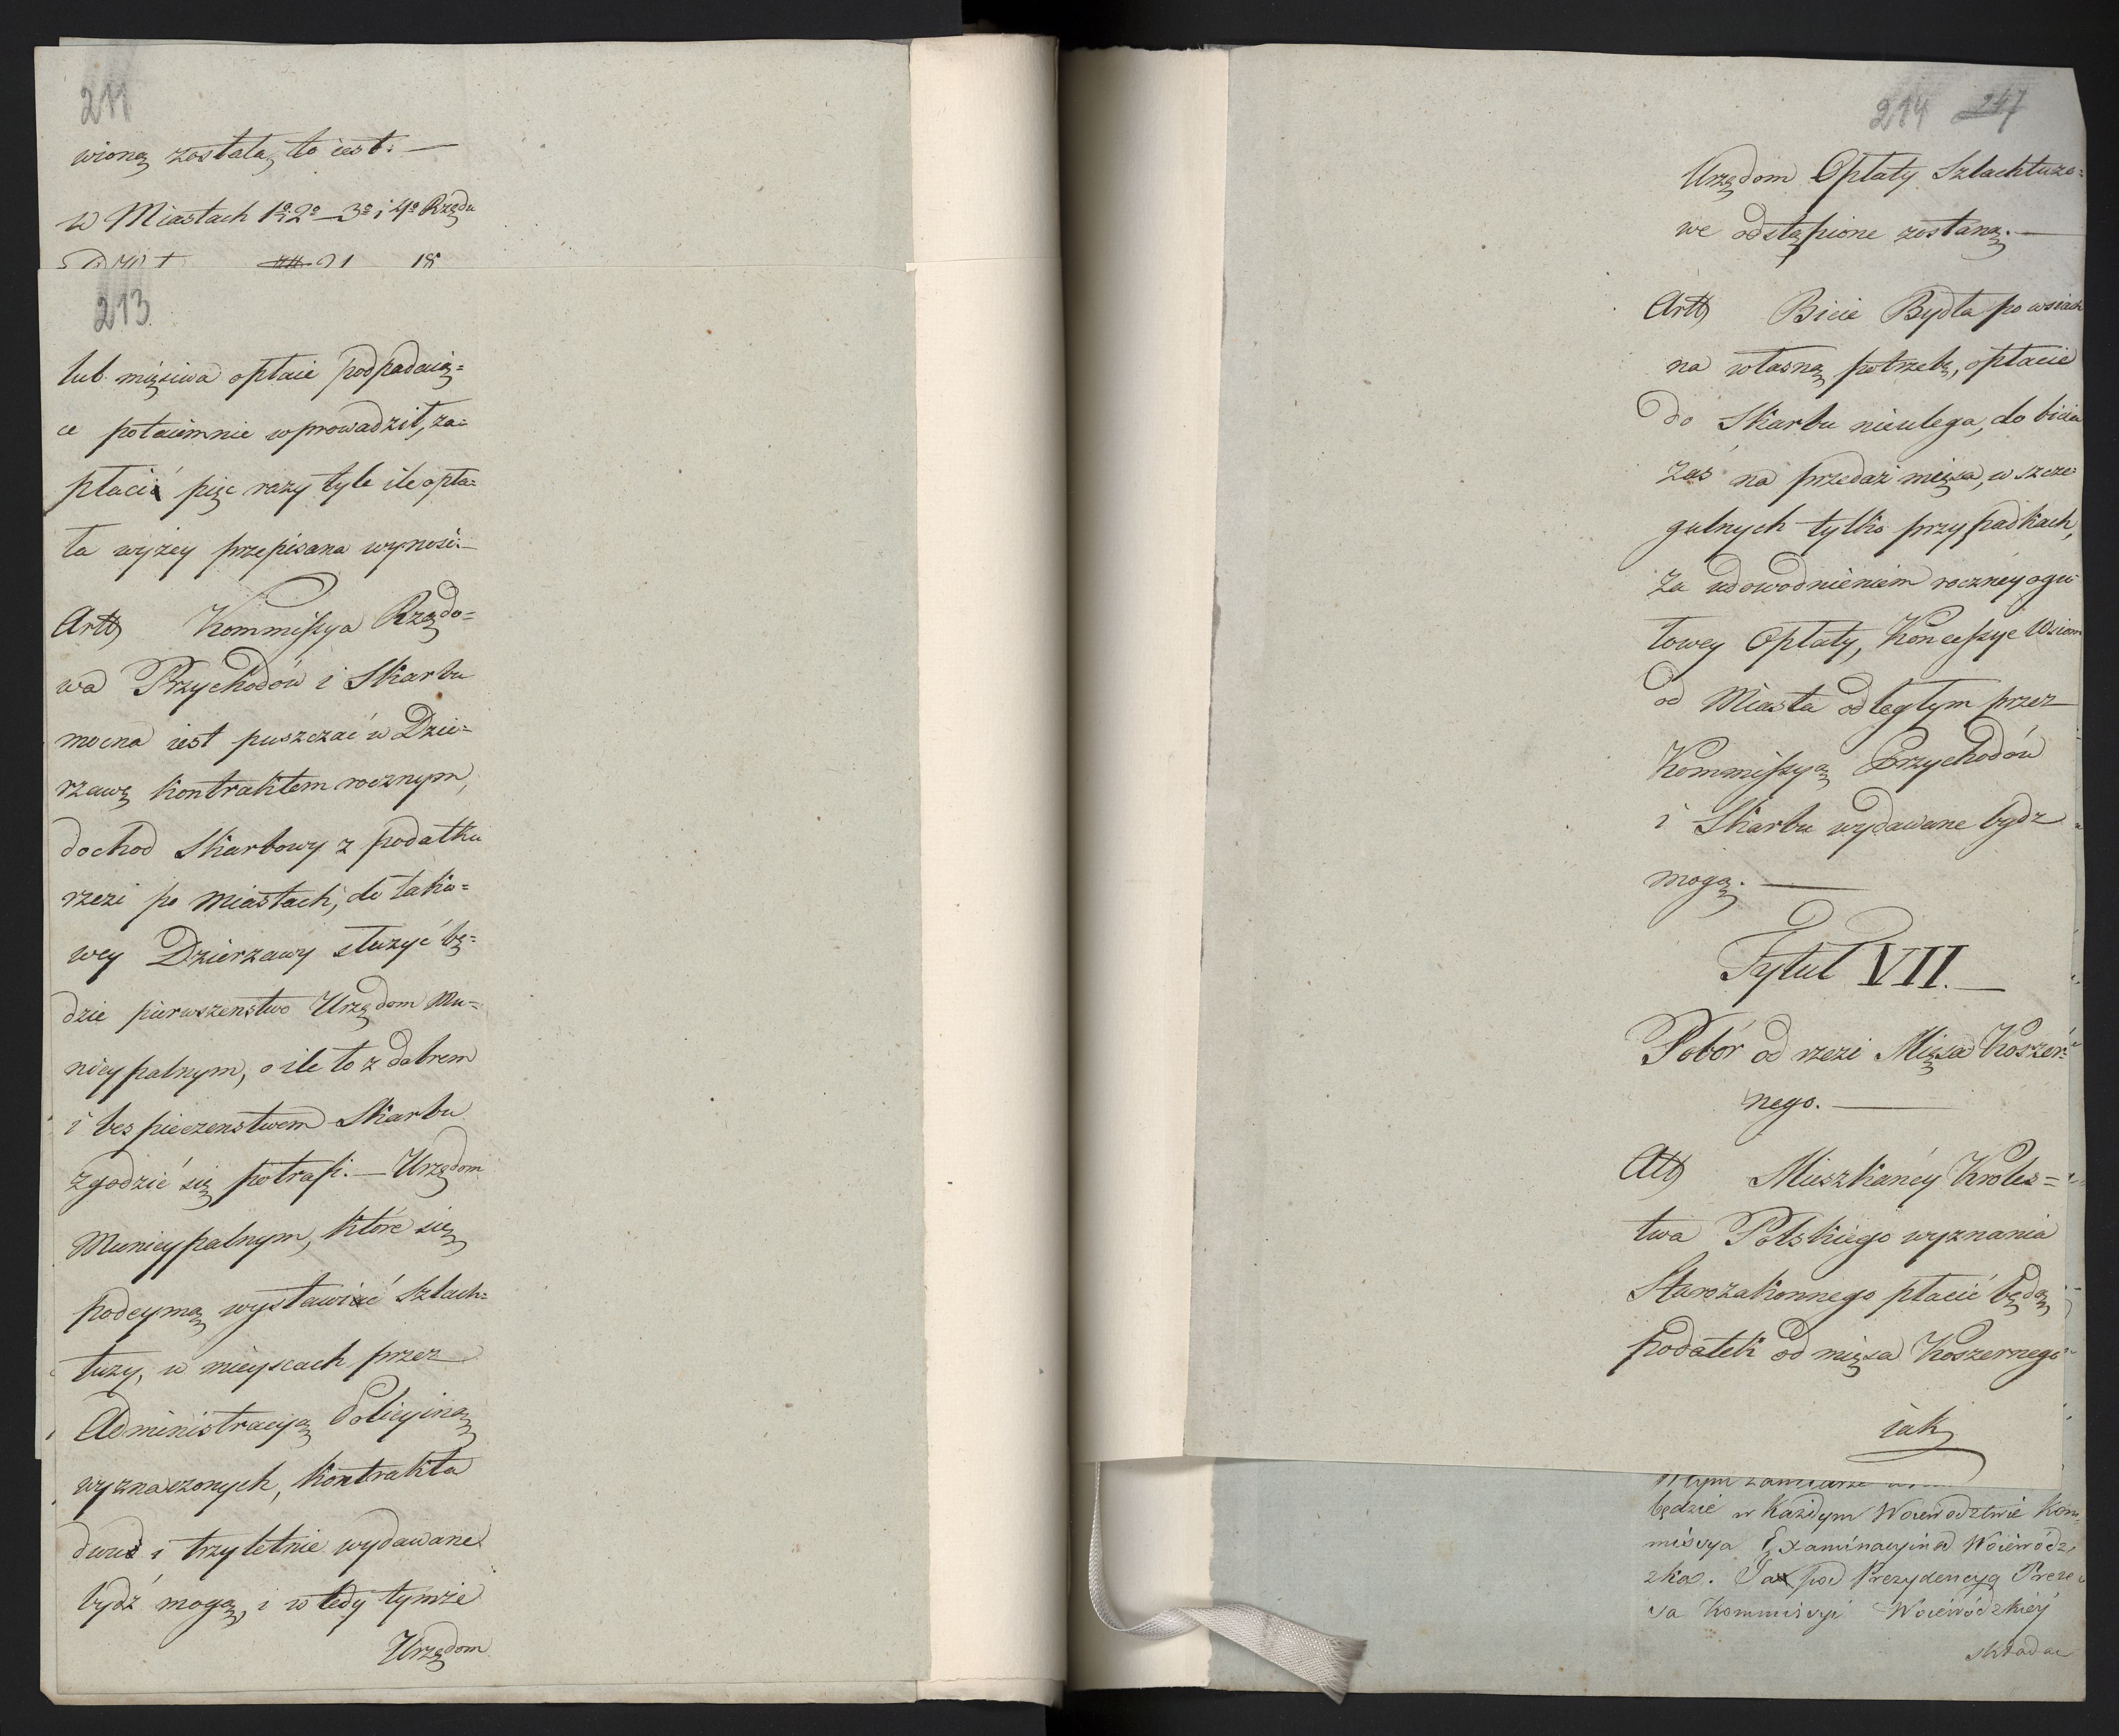 211
wioną została, to iest: —
w Miastach 1º i 2º — 3º i 4º Rzędu
21 18
213
lub mięsiwa opłaie podpadaią=
ce potaiemnie wprowadził, za=
płaci pięć razy tyle ile opła=
ta wyżey przepisana wynosi. —
Artt Kommissya Rządo=
wa Przychodów i Skarbu
mocna iest puszczać w Dzie=
rzawę kontraktem rocznym,
dochod Skarbowy z podatku
rzezi po miastach, do tako=
wey Dzierzawy służyć bę=
dzie pierwszenstwo Urzędom Mu=
nicypalnym, o ile to z dobrem
i bespieczenstwem Skarbu
zgodzić się potrafi. — Urzędom
Municypalnym, które się
podeymą wystawić Szlach=
tuzy, w mieyscach przez
Administracyą Policyiną
wyznaczonych, kontrakta
dwu i trzyletnie wydawane
bydź mogą, i wtedy tymże
Urzędom
214 247
Urzędom Opłaty Szlachtuzo=
we odstąpione zostaną. —
Artt Bicie Bydła po wsiach
na własną potrzebę, opłacie
do Skarbu nieulega, do bicia
zaś na przedaż mięsa, w szcze=
gulnych tylko przypadkach,
za udowodnieniem roczney ogu=
łowey Opłaty, Koncessye Wsiom
od Miasta odległym przez
Kommissyą Przychodów
i Skarbu wydawane bydz
mogą. —
Tytuł VII. —
Pobór od rzezi Mięsa Koszer=
nego. —
Att Mieszkańcy Króles=
twa Polskiego wyznania
Starozakonnego płacić będą
podatek od mięsa Koszernego
iak
W tym zamiarze
będzie w każdym Woiewodztwie Kom=
missya Examinacyina Woiewódz=
zka. Ta pod Prezydencyą Preze
sa Kommissyi Woiewódzkiey
składać